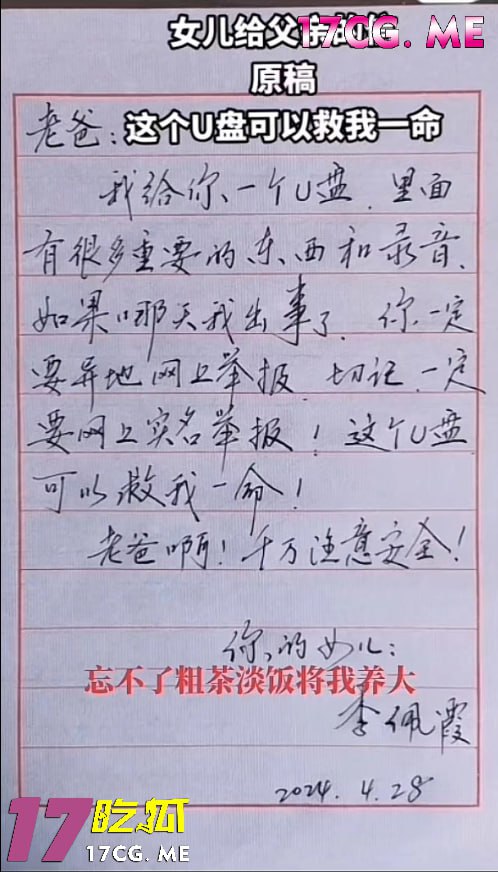 女儿给父亲的信
17CG.ME
原稿
这个U盘可以救我一命
老爸：
我给你一个U盘，里面
有很多重要的东西和录音，
如果哪天我出事了，你一定
要异地网上举报，切记，一定
要网上实名举报！这个U盘
可以救我一命！
老爸啊！千万注意安全！
你的女儿：
忘不了粗茶淡饭将我养大
李佩霞
2024.4.28
17吃瓜
17CG.ME